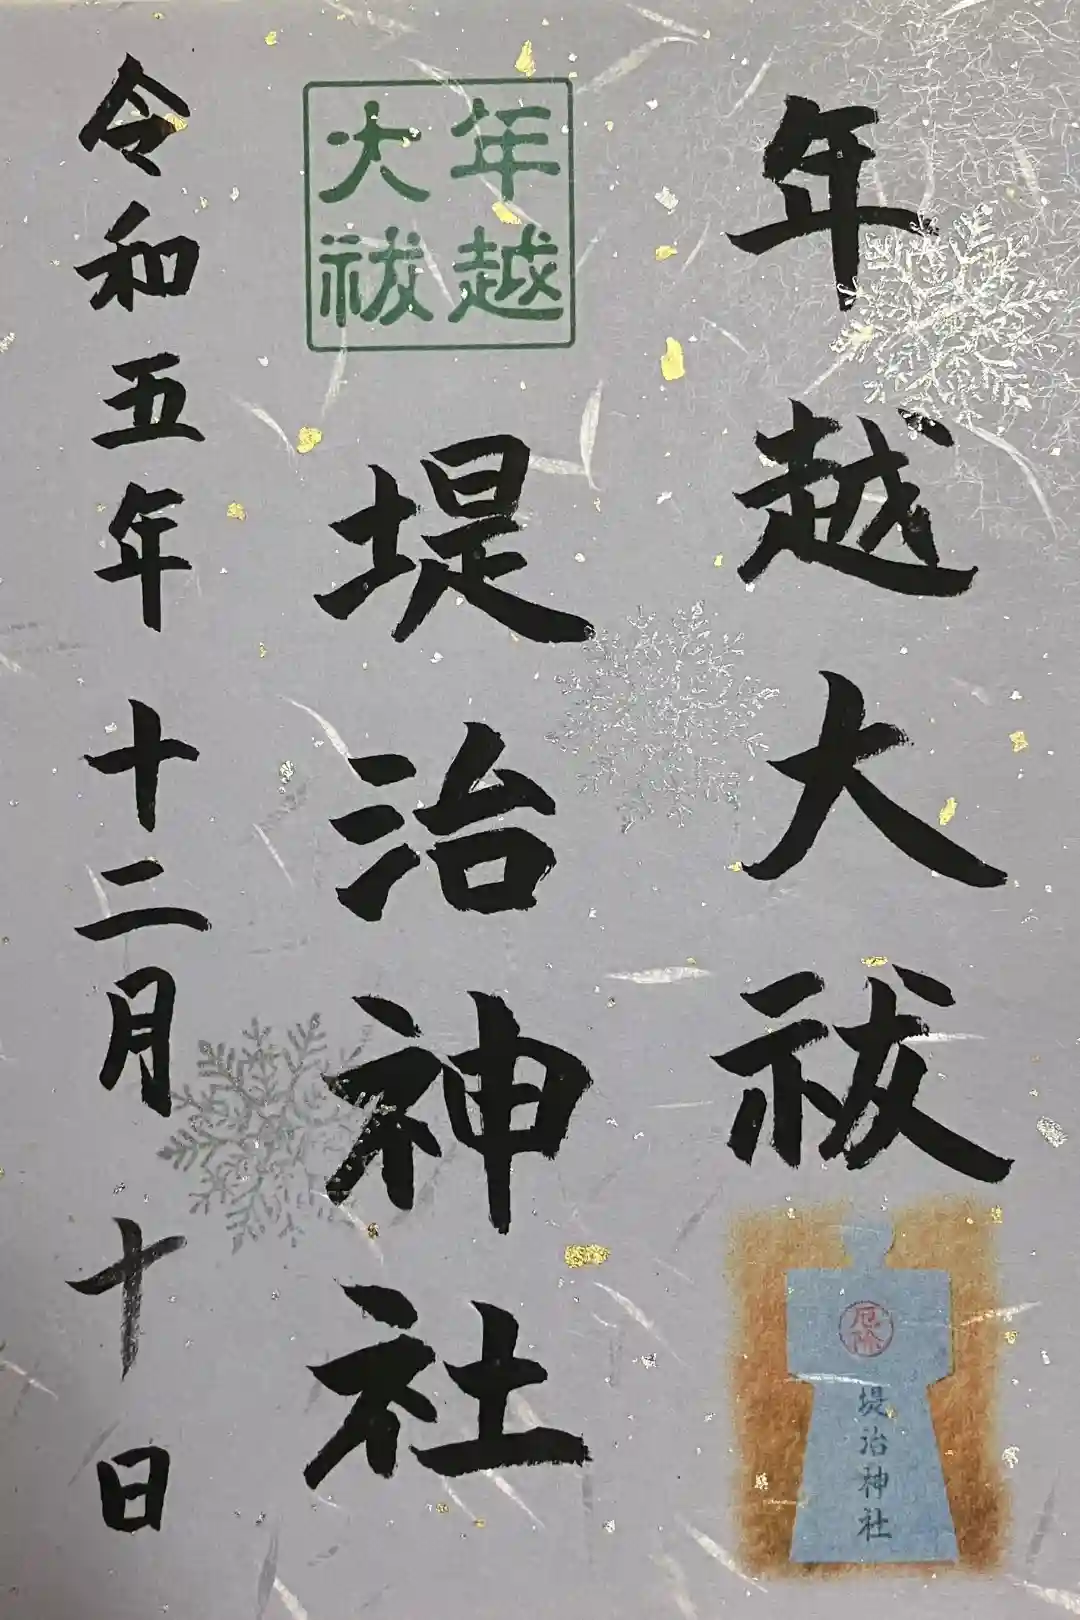 年越大祓
厄除
堤治神社
年越
大祓
堤治神社
令和五年十二月十日